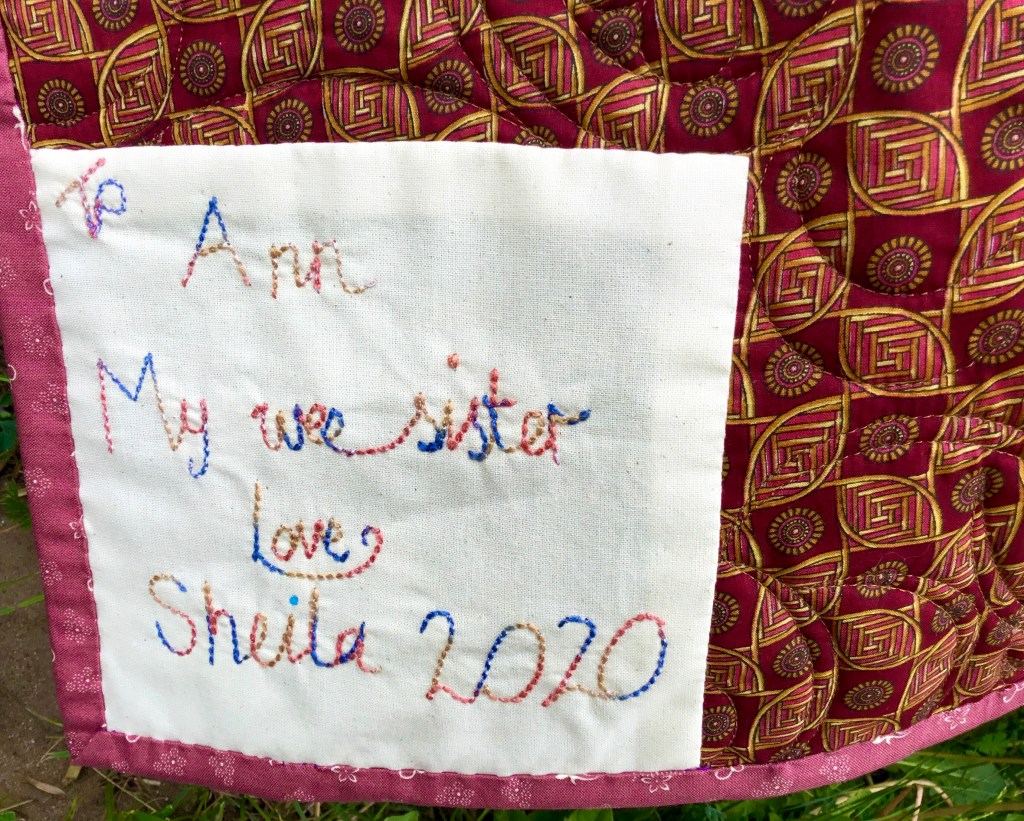 To
Ann
My wee sister
Love
Sheila 2020